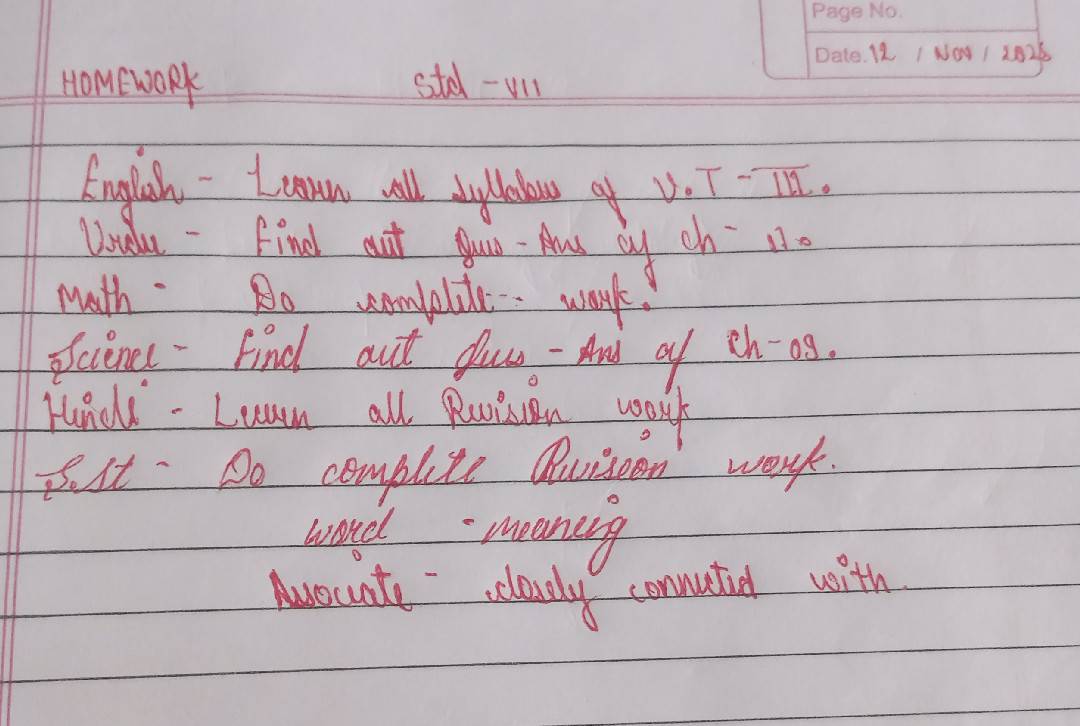 Page No.
Date. 12 / Nov / 2025
HOMEWORK Std - VII
English - Learn all syllabus of U.T - III.
Urdu - Find out Ques - Ans of ch -
Math - Do complete - work.
Science - Find out Ques - Ans of Ch - 09.
Hindi - Learn all Revision work
S.St - Do complete Revision work.
word - meaning
Associate - closely connected with.